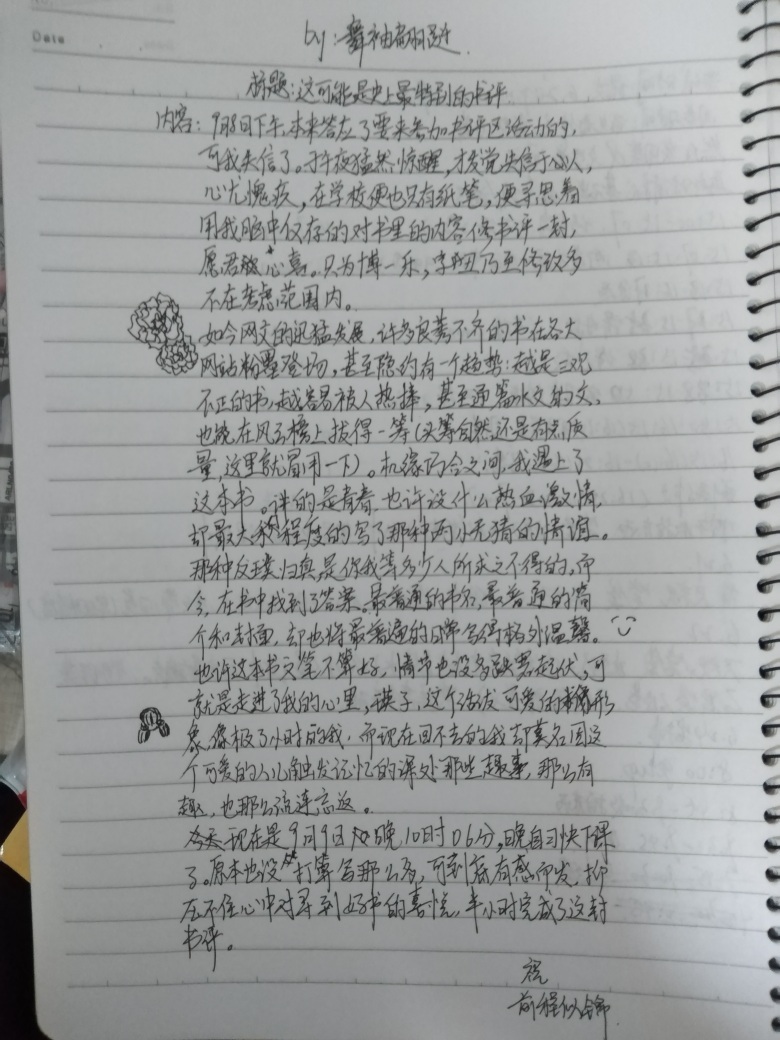 Date
by:舞袖翩跹
标题:这可能是史上最特别的书评
内容:9月8日下午,本来答应了要来参加书评区活动的,
可我失信了。于午夜猛然惊醒,才发觉失信于人,
心尤愧疚,在学校便也只有纸笔,便寻思着
用我脑中仅存的对书里的内容修书评一封,
愿君心喜。只为博一乐,字丑乃至修改多
不在考虑范围内。
如今网文的迅猛发展,许多良莠不齐的书在各大
网站粉墨登场,甚至隐约有一个趋势:越是三观
不正的书,越容易被人热捧,甚至通篇水文的文,
也能在风云榜上拔得一筹(头筹自然还是有点质
量,这里就冒用一下)。机缘巧合之间,我遇上了
这本书。讲的是青春,也许没什么热血激情,
却最大程度的写了那种两小无猜的情谊。
那种反璞归真是你我等多少人所求之不得的,而
今,在书中找到了答案。最普通的书名,最普通的简
介和封面,却也将最普通的日常写得格外温馨。
也许这本书文笔不算好,情节也没多跌宕起伏,可
就是走进了我的心里,瑛子,这个活泼可爱的形
象像极了小时的我,而现在回不去的我却莫名因这
个可爱的人儿触发记忆的深处那些趣事,那么有
趣,也那么流连忘返。
现在是9月9日晚10时06分,晚自习快下课
了。原本也没打算写那么多,可到底有感而发,抑
压不住心中对寻到好书的喜悦,半小时完成了这封
书评。
祝
前程似锦